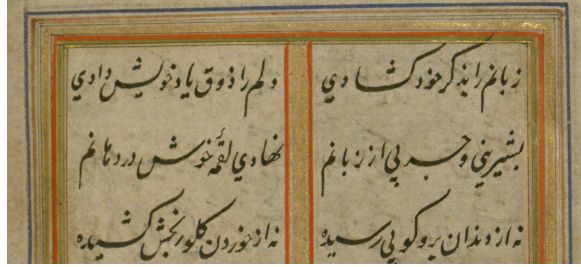 زبانم را بذکر خود کشادي دلم را ذوق یاد خویش دادي
بشیریني و چربي از زبانم نهادي لقمهٔ خوش در دهانم
نه از دندان برو کوبي رسیده نه از خوردن کلو رنجش کشیده